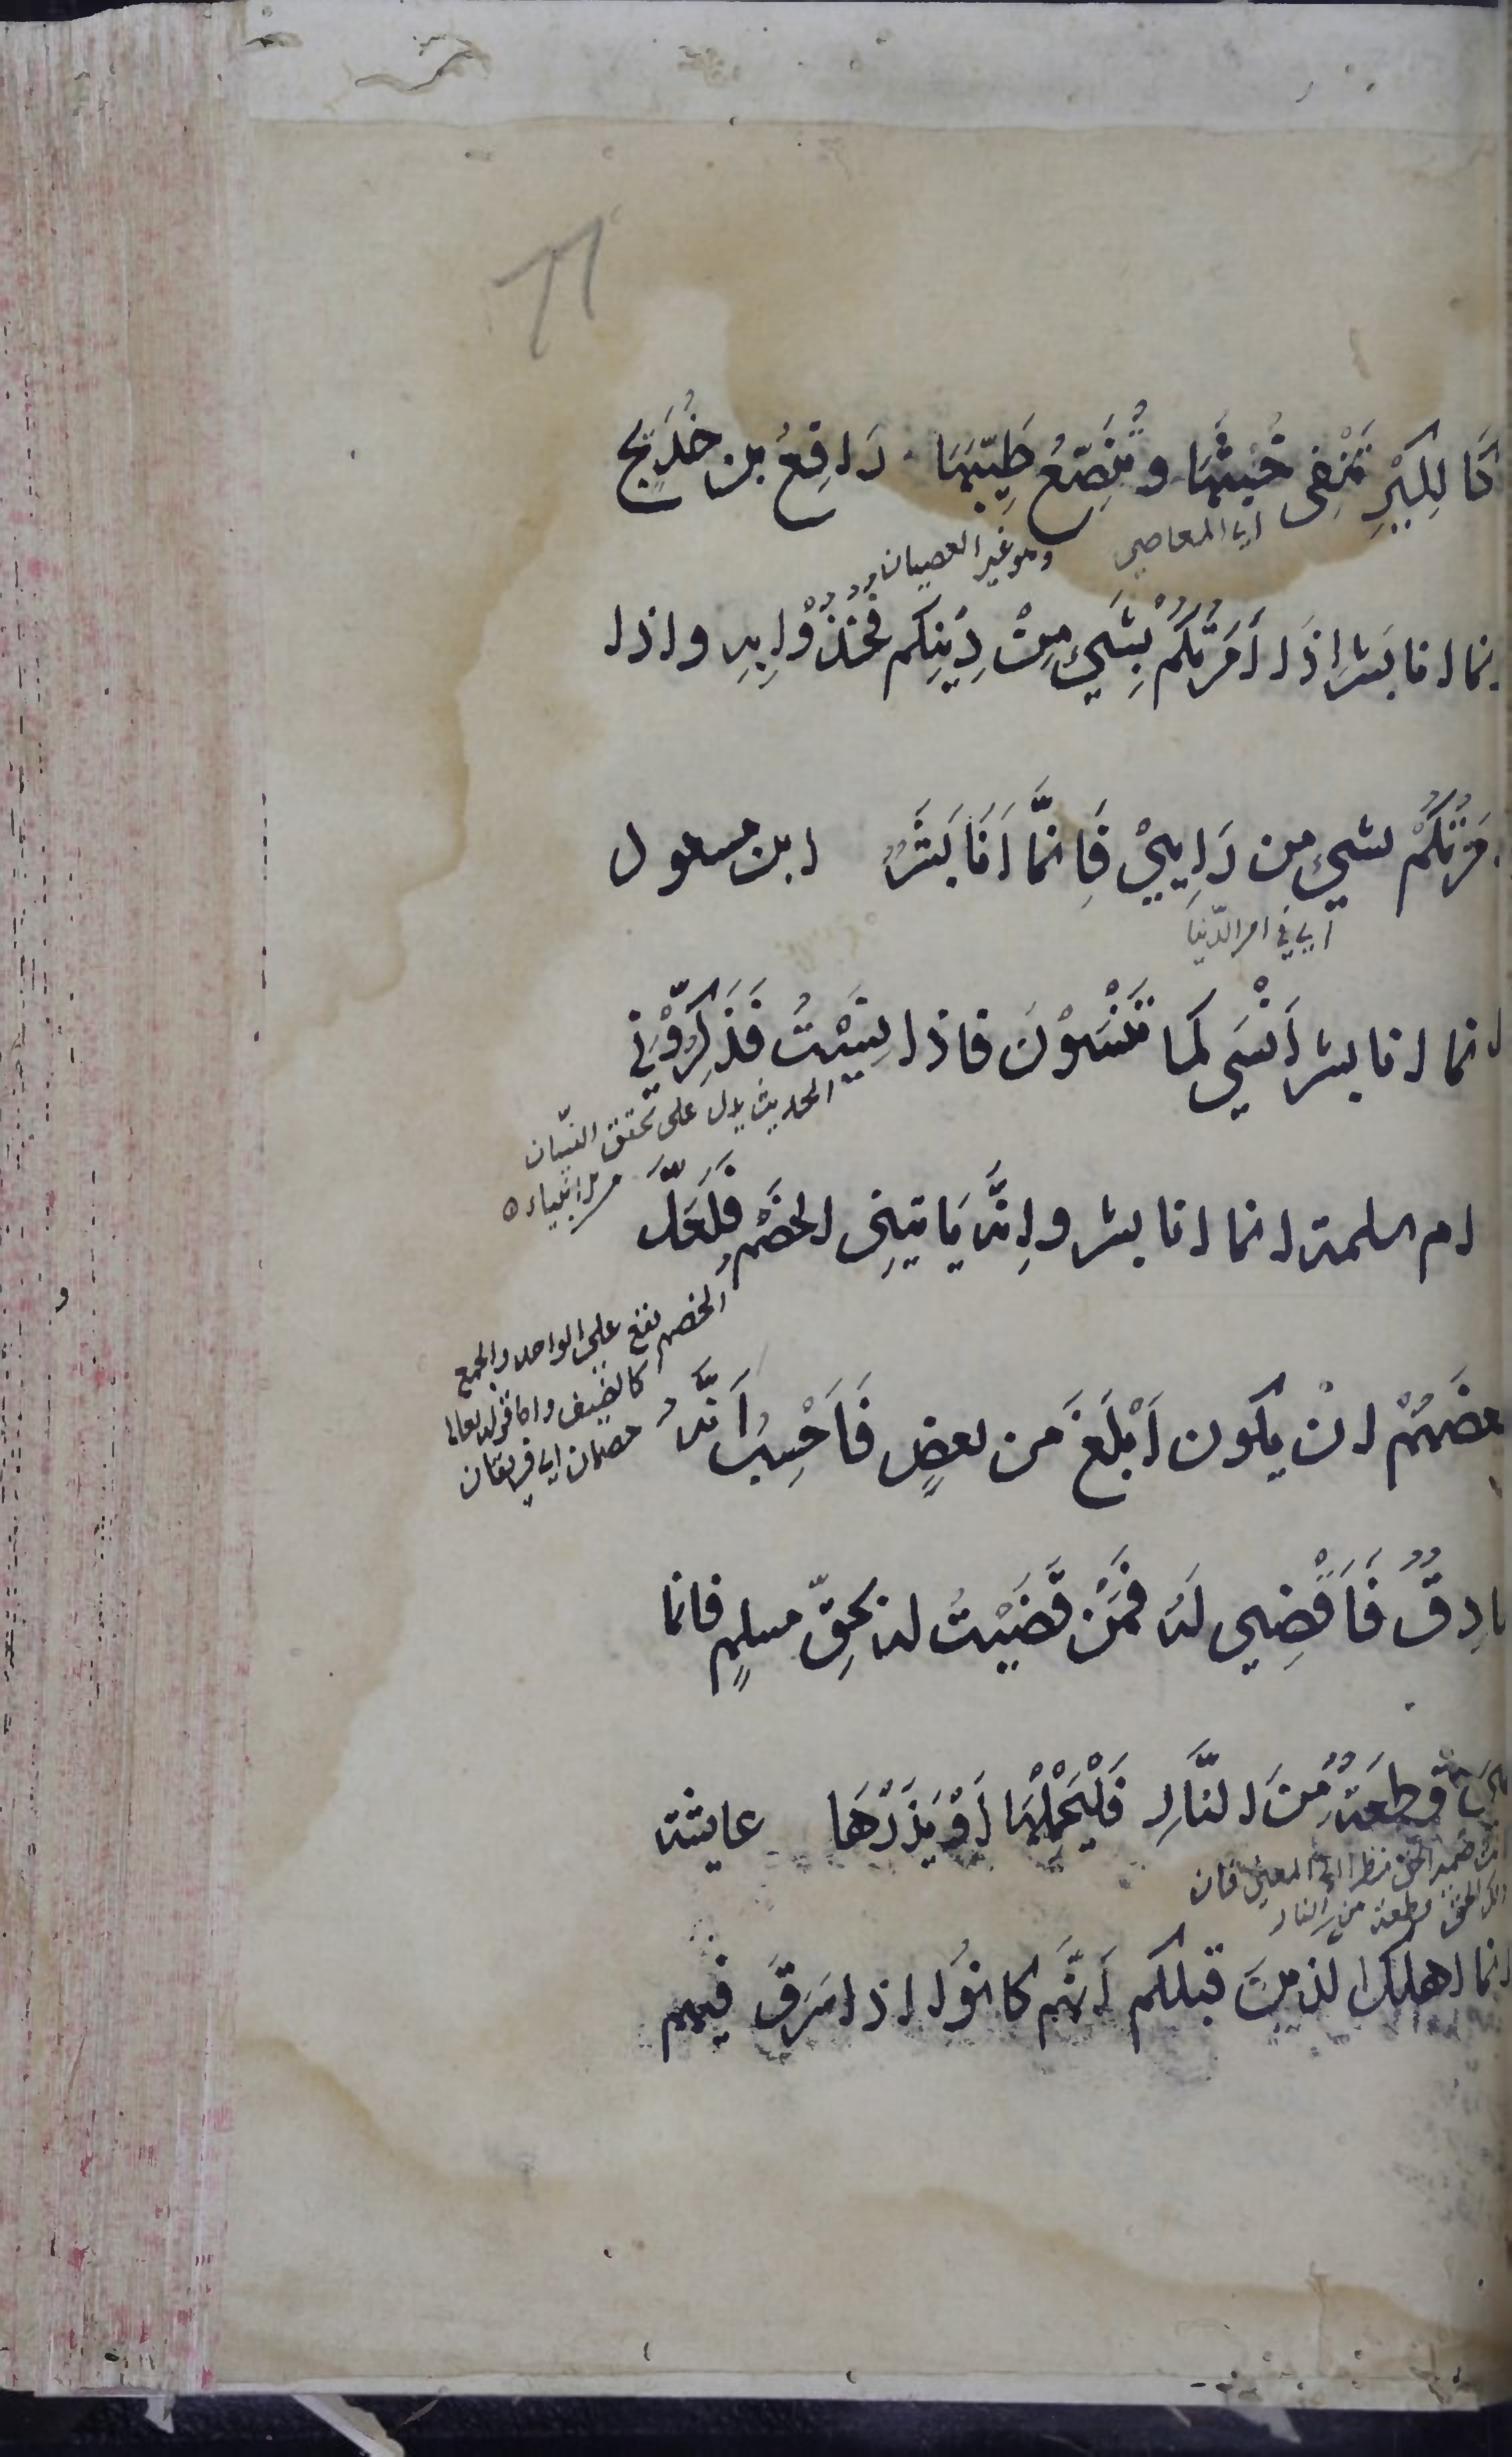 كَالكِيْرِ تَنْفِى خَبَثَهَا و تُنَصِّعُ طَيِّبَهَا رَافِعُ بن خُدَيْج
اى المعاصى وهو غير العصيان
انما انا بشر اِذَا اَمَرْتُكُمْ بِشَىْءٍ مِنْ دِيْنِكُم فَخُذُوْا بِهِ و اذا
اَمَرْتُكُمْ بشىءٍ من رَاْيِىْ فَاِنَّمَا اَنَا بَشَرٌ ابن مسعود
اى فى امر الدّنيا
انما انا بشر اَنْسَى كما تَنْسَوْنَ فاذا نَسِيْتُ فَذَكِّرُوْنِى
الحديث يدل على تحقق النسيان
من الانبياء
ام سلمة انما انا بشر و اِنَّه يَاتِيْنِى الخَصْمُ فَلَعَلَّ
الخصم يقع على الواحد والجمع
كالضيف واما قوله تعالى
خصمان اى فريقان
بعضَهُمْ انْ يكون اَبْلَغَ من بعضٍ فَاَحْسِبُ اَنَّهُ
صَادِقٌ فَاَقْضِى لَه فَمَنْ قَضَيْتُ له بِحَقِّ مسلمٍ فانما
هِىَ قِطعَةٌ مِنَ النَّارِ فَلْيَحْمِلْهَا اَوْ يَذَرْهَا عايشة
ضمير الحق نظرا الى المعنى فان
ذلك الحق قطعة من النار
انما اهلك الذين قبلكم اَنَّهُم كانُوا اذا سَرَقَ فيهم